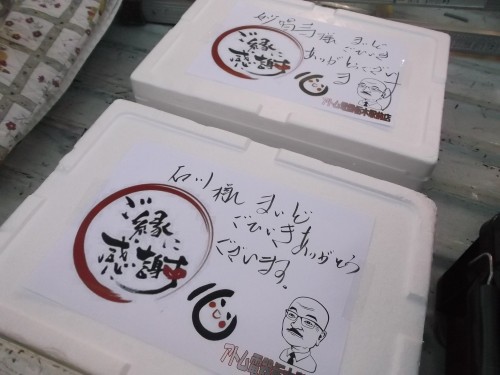 様 まいど
ごひいき
ありがとうござい
ま
ご縁に
感謝
心
アトム
店
石川様 まいど
ごひいきありがとう
ございます。
ご縁に
感謝
心
アトム